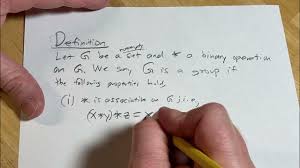 Definition
nonempty
Let G be a set and * a binary operation
on G. We say G is a group if
the following properties hold,
(i) * is associative on G, i.e.,
(x*y)*z = x